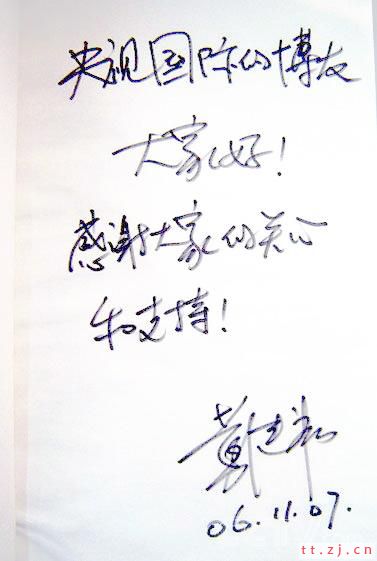 央视国际的博友
大家好!
感谢大家的关心
和支持!
06.11.07.
tt.zj.cn